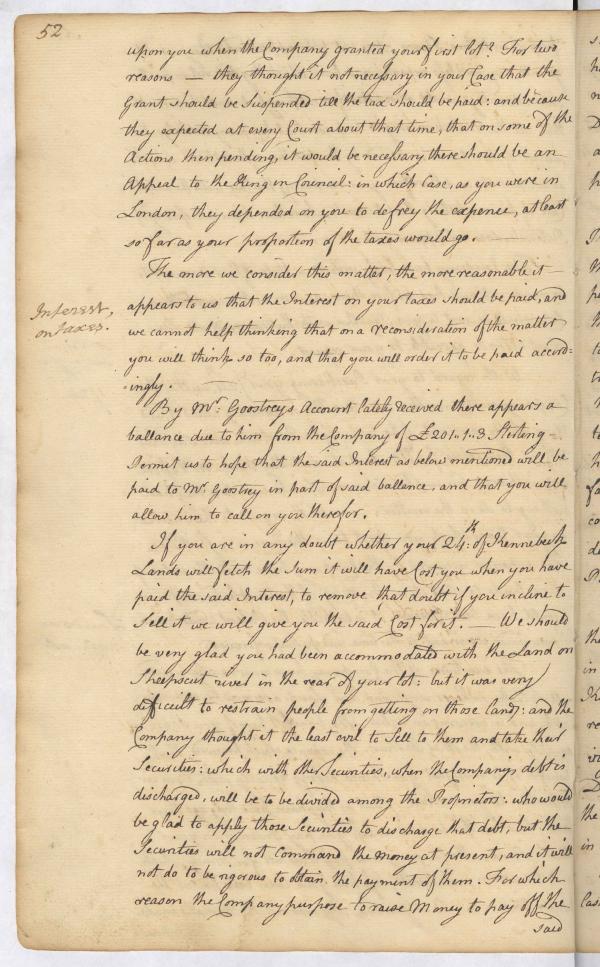 52
upon you when the Company granted your first lot? For two
reasons — they thought it not necessary in your Case that the
Grant should be suspended till the tax should be paid: and because
they expected at every Court about that time, that on some of the
Actions then pending, it would be necessary there should be an
Appeal to the King in Council: in which Case, as you were in
London, they depended on you to defrey the expence, at least
so far as your proportion of the taxes would go. —
The more we consider this matter, the more reasonable it
Interest,
on taxes.
appears to us that the Interest on your taxes should be paid, and
we cannot help thinking that on a reconsideration of the matter
you will think so too, and that you will order it to be paid accord=
ingly. —
By Mr. Goostreys Account lately received there appears a
ballance due to him from the Company of £201..1..3 Sterling
Permit us to hope that the said Interest as below mentioned will be
paid to Mr. Goostrey in part of said ballance, and that you will
allow him to call on you therefor.
If you are in any doubt whether your 24th: of Kennebeck
Lands will fetch the Sum it will have Cost you when you have
paid the said Interest, to remove that doubt if you incline to
Sell it we will give you the said Cost for it. — We should
be very glad you had been accommodated with the Land on
Sheepscut river in the rear of your lot: but it was very
difficult to restrain people from getting on those land: and the
Company thought it the least evil to Sell to them and take their
Securities: which with other Securities, when the Companys debt is
discharged, will be to be divided among the Proprietors: who would
be glad to apply those Securities to discharge that debt, but the
Securities will not command the money at present, and it will
not do to be rigorous to obtain the payment of them. For which
reason the Company purpose to raise Money to pay off the
said